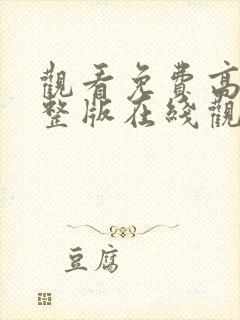 觀看免費高
整版在綫觀
豆腐